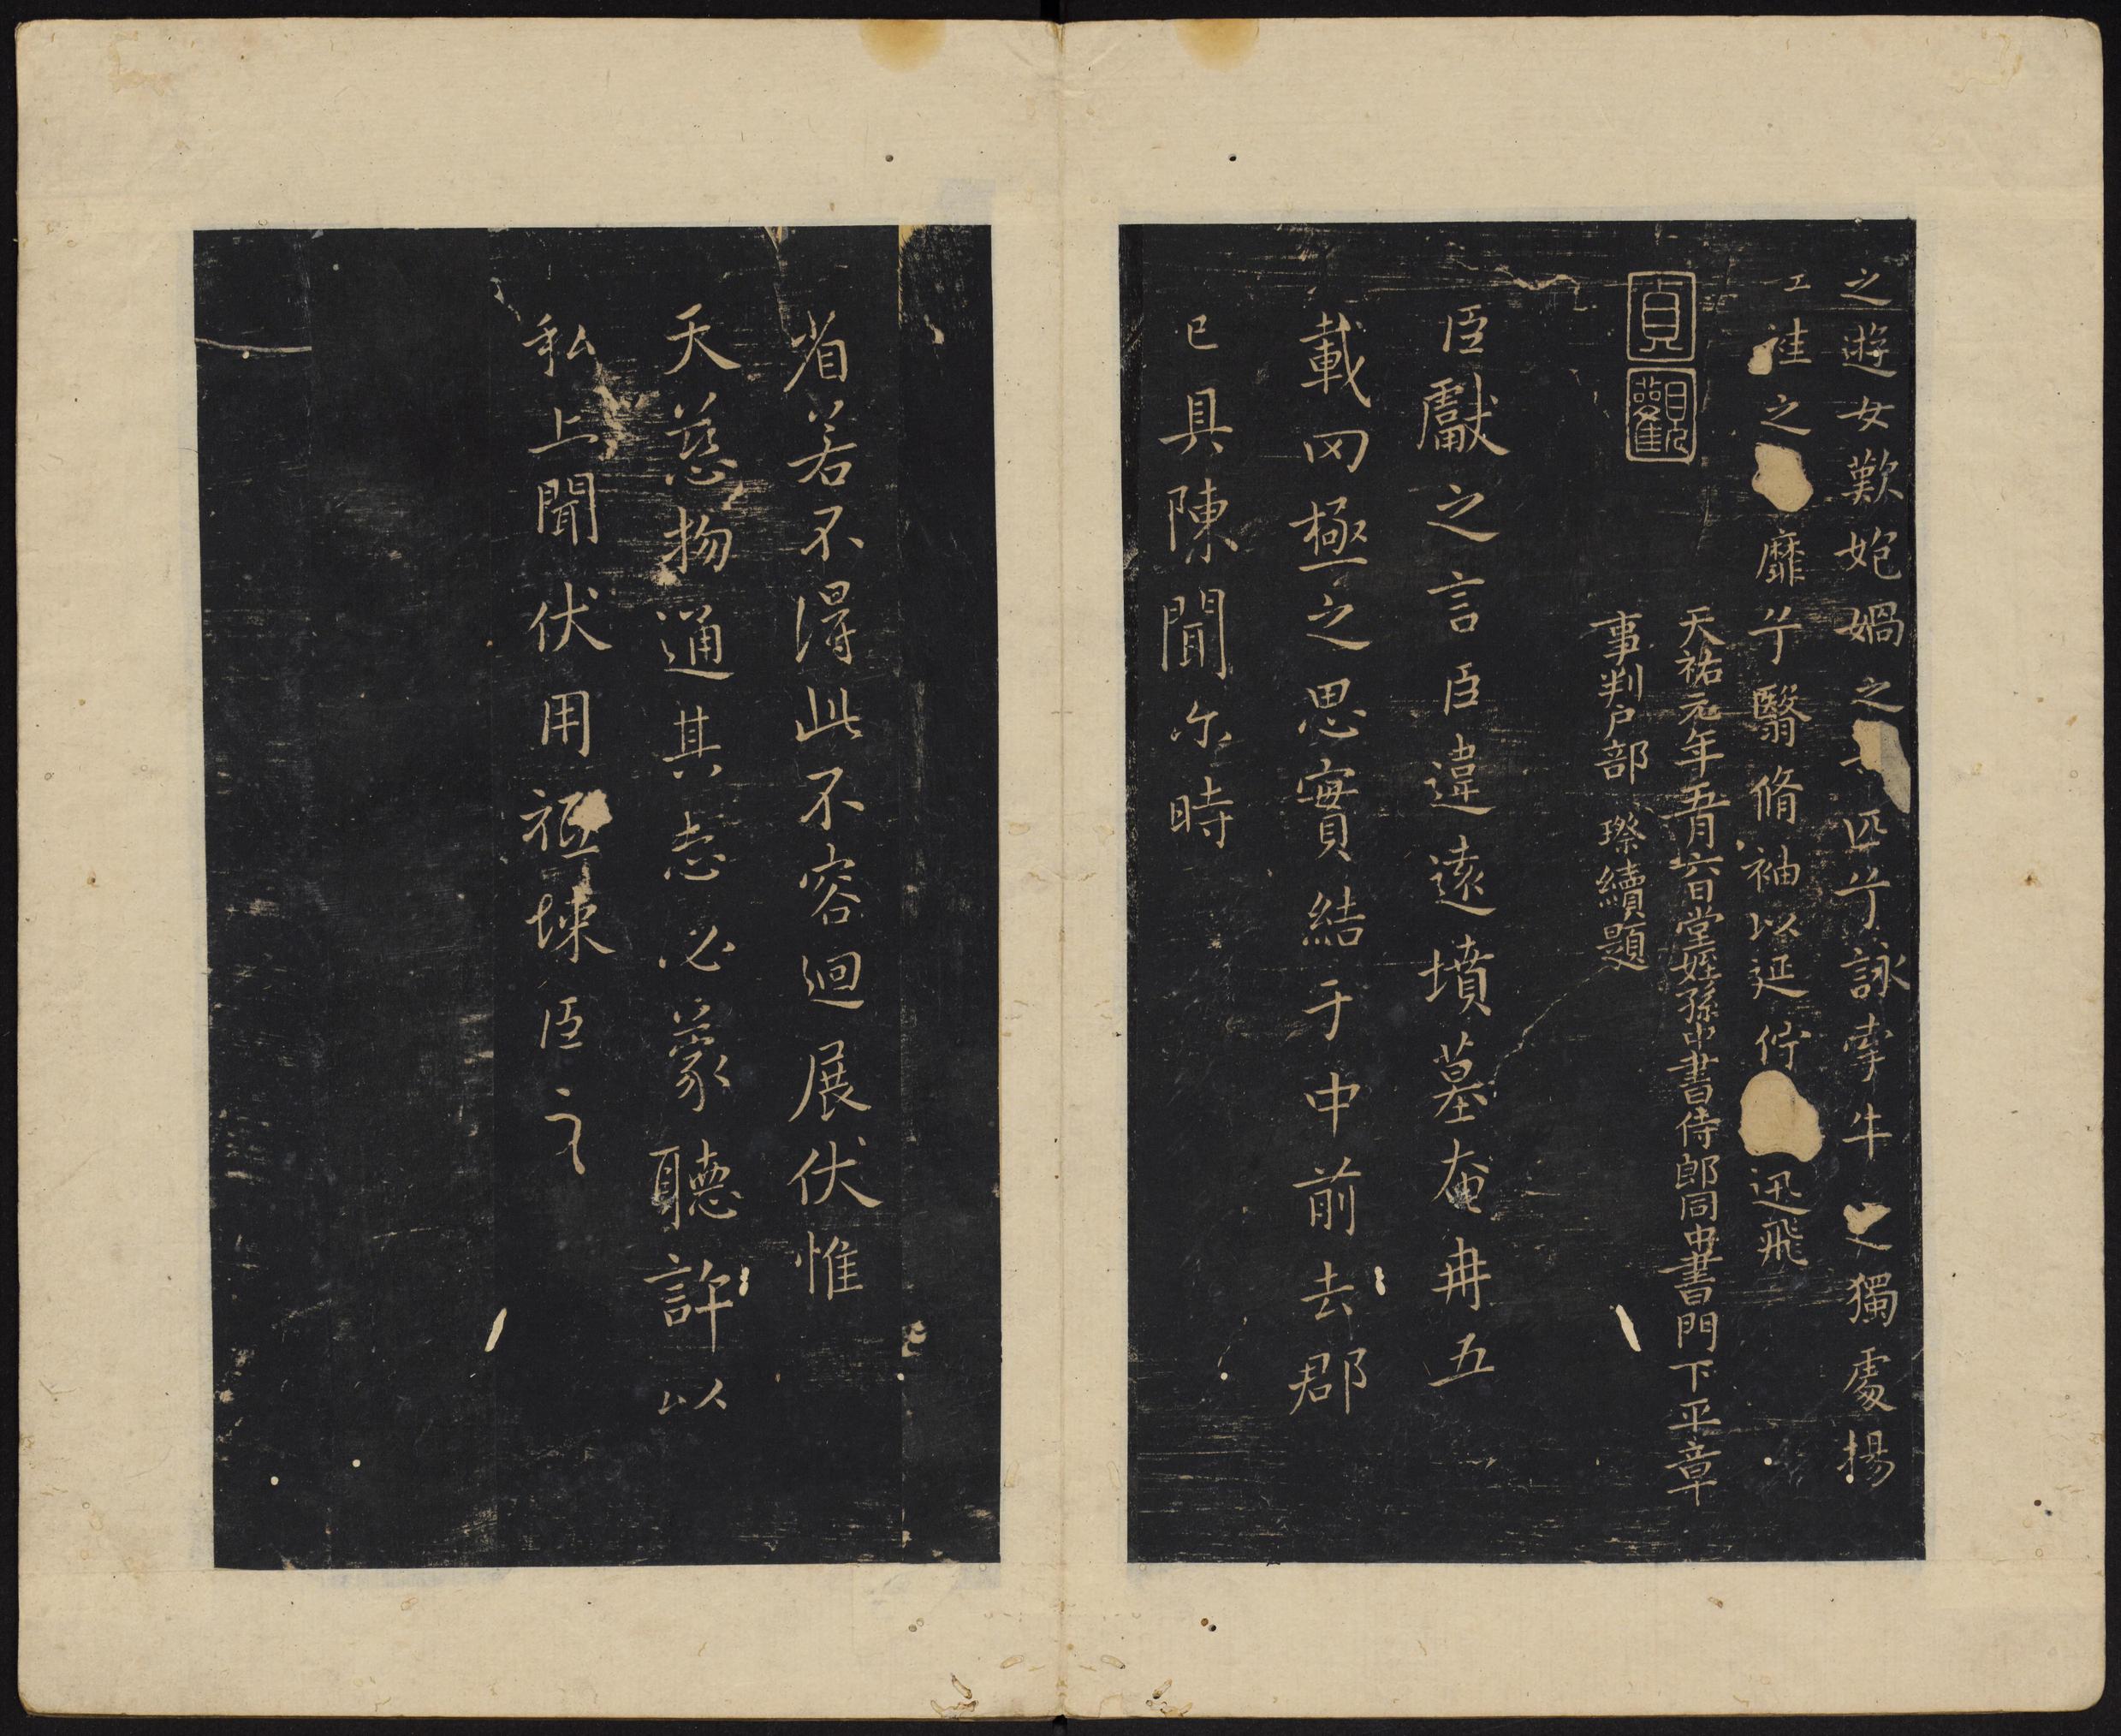 之遊女歎匏媧之 匹兮詠牽牛之獨處揚
袿之 靡兮翳脩袖以延佇 迅飛
天祐元年五月六日堂姪孫中書侍郎同中書門下平章
事判戶部 璨續題
貞觀
臣獻之言臣違遠墳墓奄冉五
載罔極之思實結于中前去郡
已具陳聞尔時
省若不得此不容迴展伏惟
天慈物通其志必蒙聽許以
私上聞伏用祗悚臣言